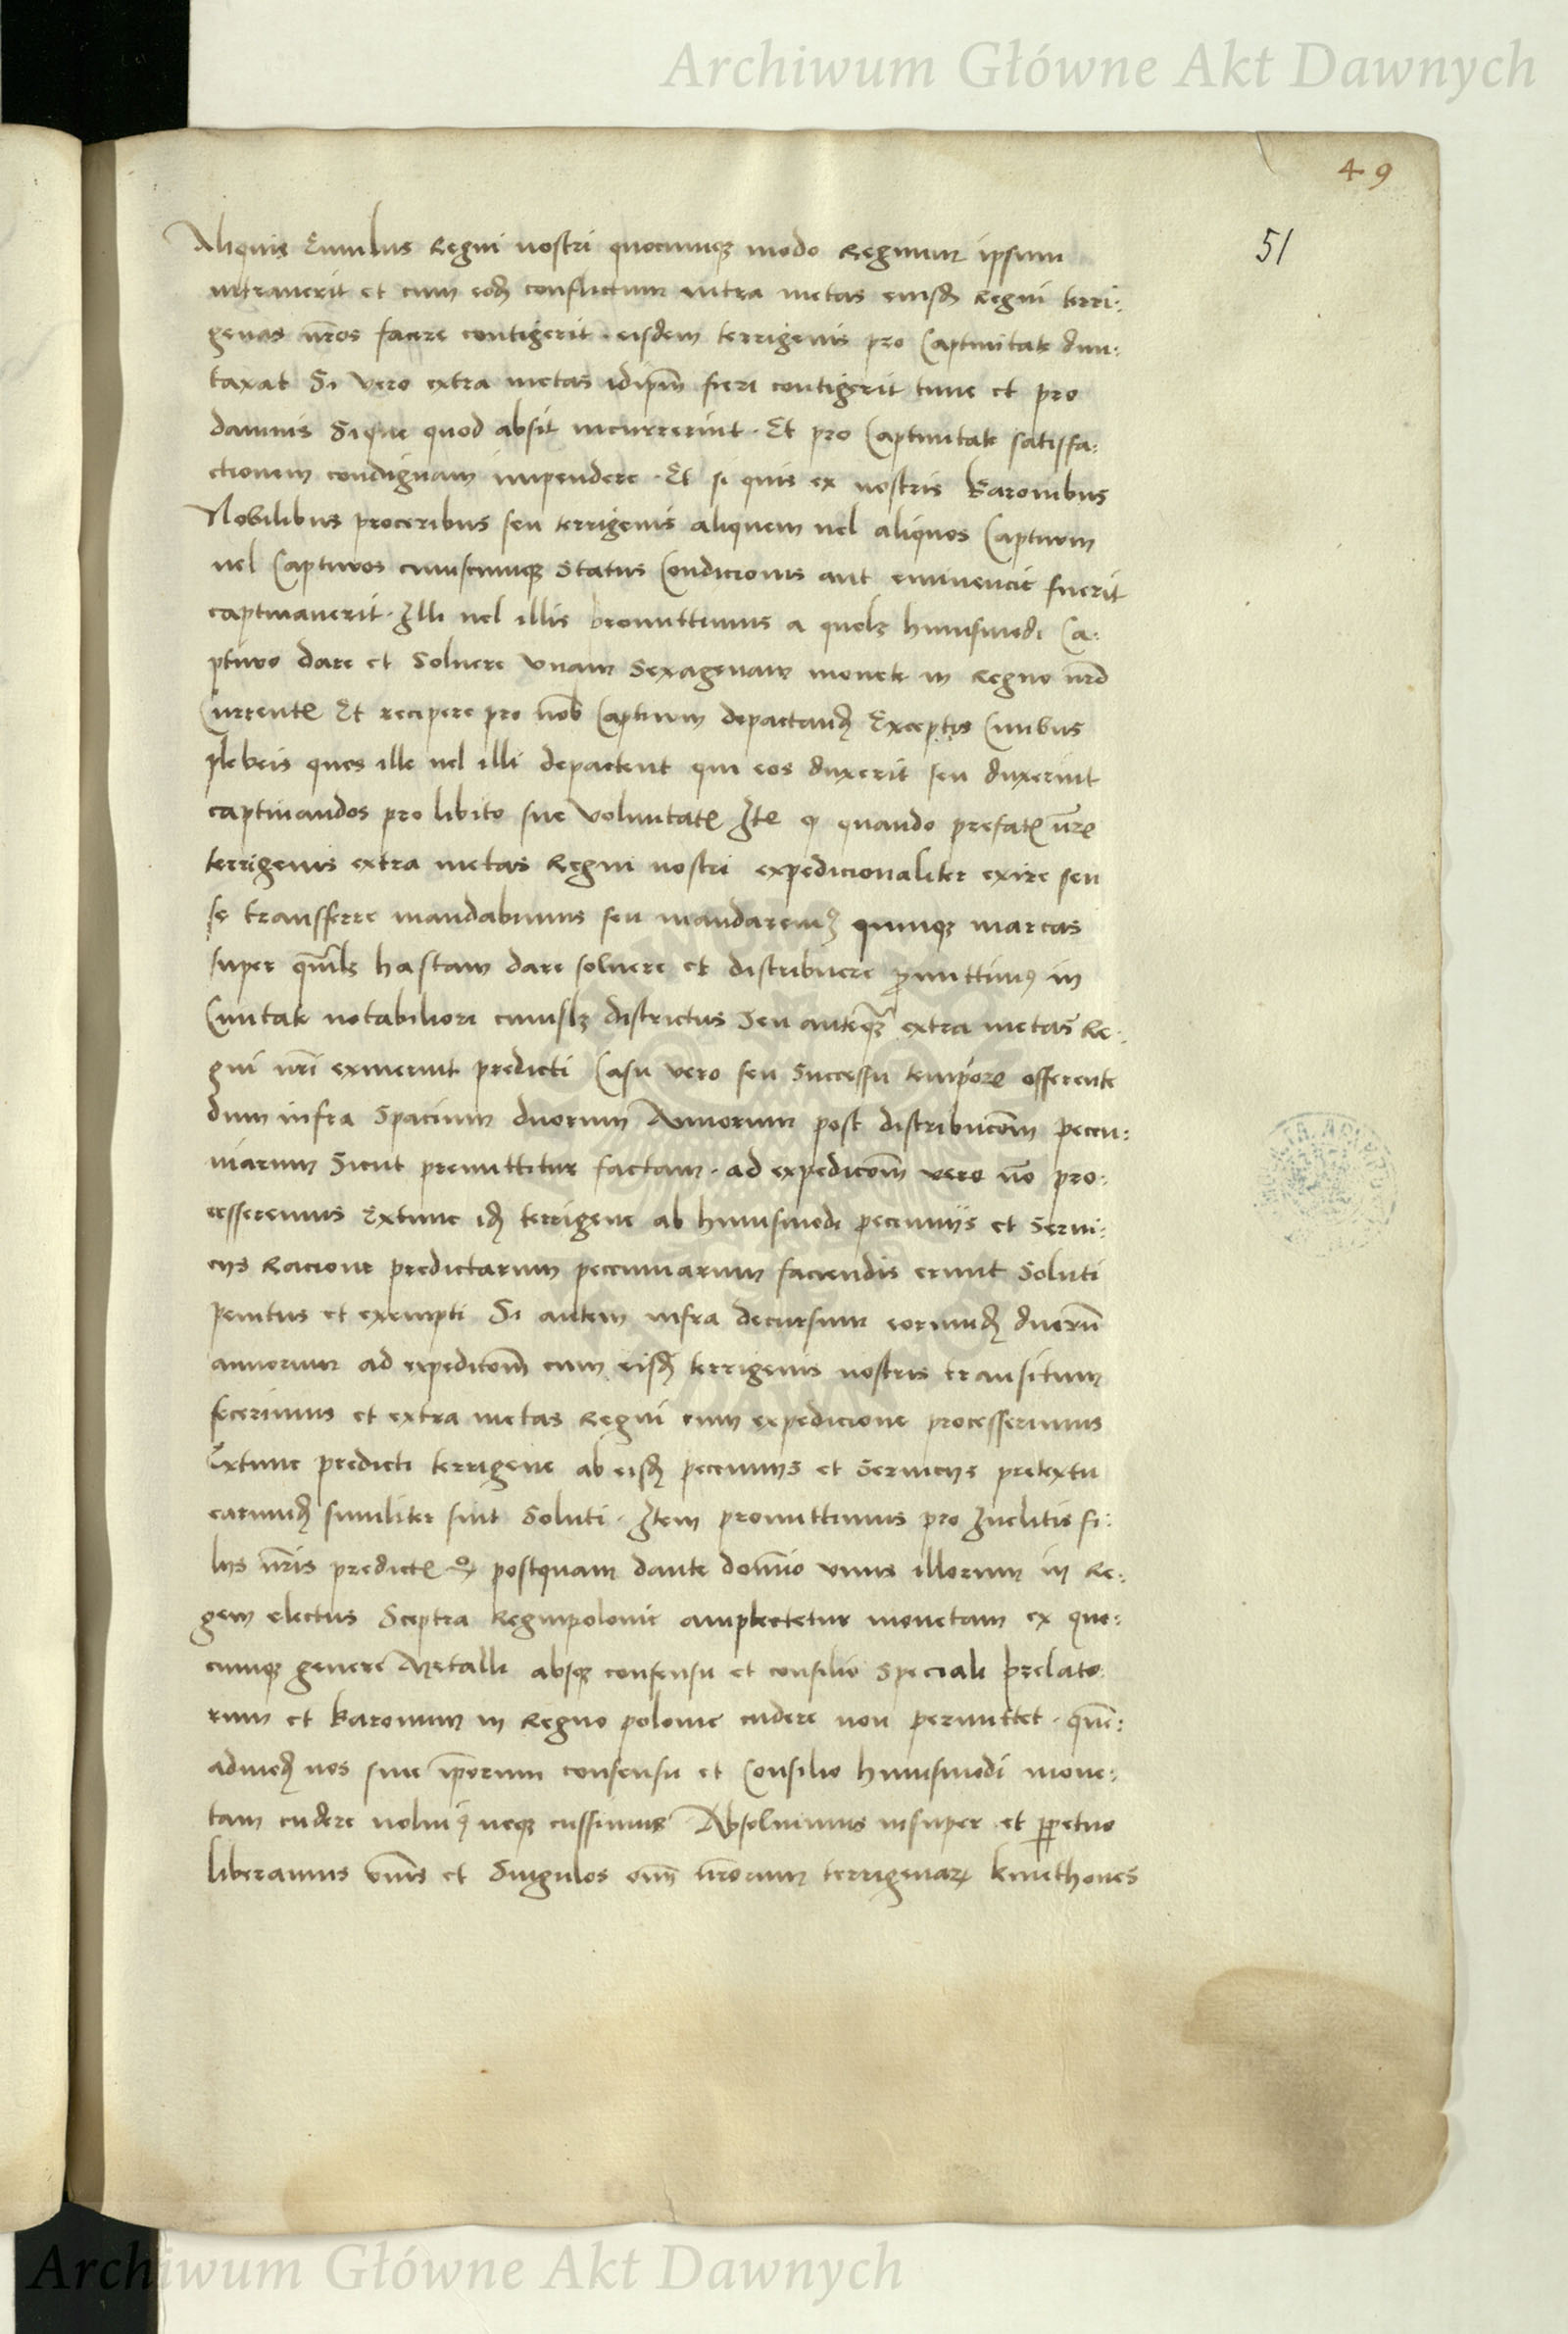 Archiwum Główne Akt Dawnych
49
51
Aliquis Emulus Regni nostri quocumqꝫ modo Regnum ipsum
intrauerit et cum eodꝫ conflictum intra metas eiusdꝫ Regni terri-
genas nr̄os facere contigerit. eisdem terrigenis pro Captiuitate dun-
taxat Si vero extra metas idip̄m fieri contigerit tunc et pro
damnis Sique quod absit incurrerint. Et pro Captiuitate satisfa-
ctionem condignam impendere. Et si quis ex nostris Baronibus
Nobilibus proceribus seu terrigenis aliquem uel aliquos Captiuum
uel Captiuos cuiuscumqꝫ Status Condicionis aut eminencie fuerit
captiuauerit. Illi uel illis promittimus a quolꝫ huiusmodi Ca-
ptiuo dare et Soluere vnam Sexagenam monete in Regno nr̄o
Currentꝭ Et recipere pro nob̄ Captiuum depactandꝫ Exceptis Ciuibus
plebeis quos ille uel illi depactent qui eos duxerit seu duxerint
captiuandos pro libito sue voluntatꝭ Itē ꝙ quando prefatꝭ nr̄ꝭ
terrigenis extra metas Regni nostri expedicionaliter exire seu
se transferre mandabimus seu mandaremꝰ quinqꝫ marcas
super quālꝫ hastam dare soluere et distribuere ꝓmittimꝰ in
Ciuitate notabiliori cuiuslꝫ districtus Seu anteqꝫ extra metas Re-
gni nr̄i exiuerint predicti Casu vero seu Successu temporꝭ offerente
dum infra Spacium duorum Annorum post distribucōm pecu-
niarum Sicut premittitur factam. ad expedicōm vero nō pro-
cesseremus Extunc idꝫ terrigene ab huiusmodi pecunijs et Serui-
cijs Racione predictarum pecuniarum faciendis erunt Soluti
penitus et exempti Si autem infra decursum eorundꝫ duorū
annorum ad expedicōm cum eisdꝫ terrigenis nostris transitum
fecerimus et extra metas Regni cum expedicione processerimus
Extunc predicti terrigene ab eisdꝫ pecunijs et Seruicijs pretextu
earundꝫ similiter sint Soluti. Item promittimus pro Inclitis fi-
lijs nr̄is predictꝭ ꝙ postquam dante domīo vnus illorum in Re-
gem electus Sceptra Regni polonie amplectetur monetam ex quo-
cumqꝫ genere Metalli absqꝫ consensu et consilio speciali prelato-
rum et Baronum in Regno polonie cudere non permittet. quē-
admodꝫ nos sine ip̄orum consensu et Consilio huiusmodi mone-
tam cudere noluimꝰ neqꝫ cussimus Absoluimus insuper et ꝑpetuo
liberamus om̄s et Singulos om̄ nr̄orum terrigenarꝝ kmethones
Archiwum Główne Akt Dawnych